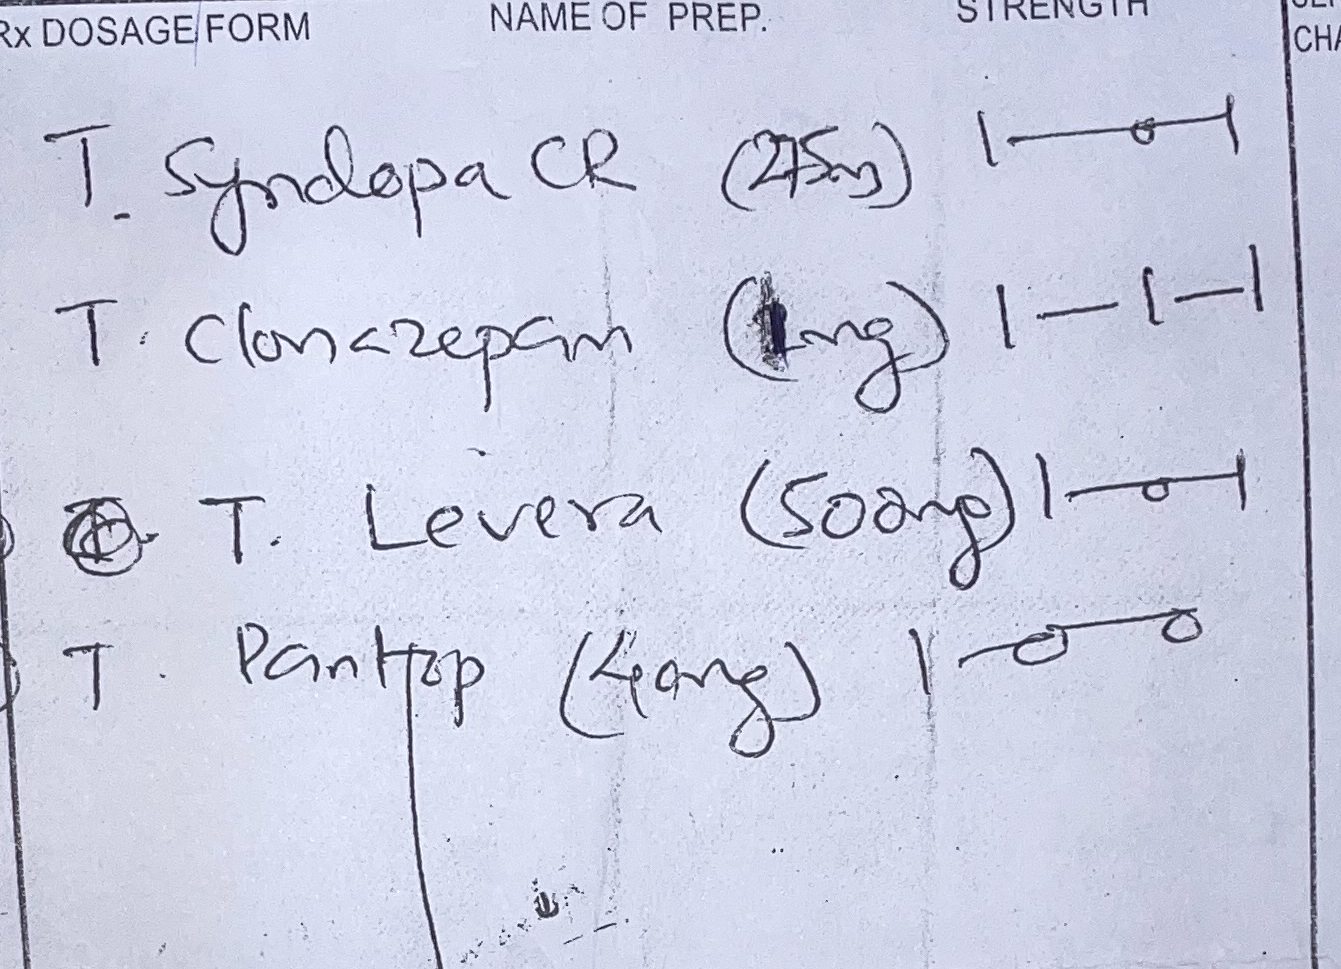 Rx DOSAGE FORM NAME OF PREP. STRENGTH
T. Syndopa CR (275mg) 1-0-1
T. Clonazepam (1mg) 1-1-1
T. Levera (500mg) 1-0-1
T. Pantop (40mg) 1-0-0